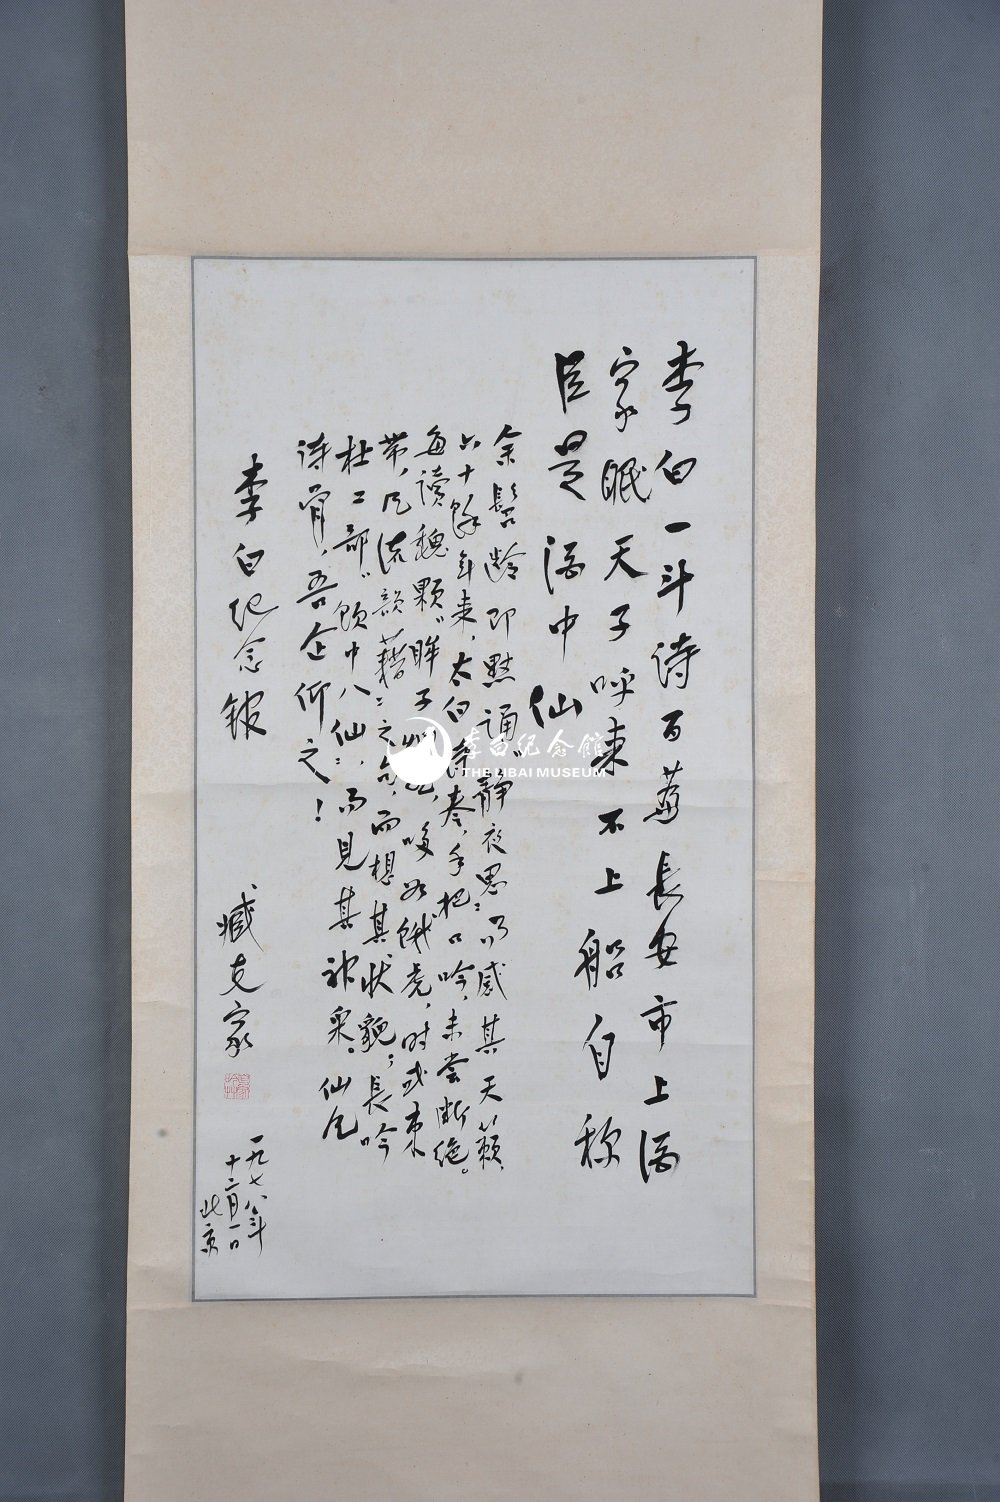 李白一斗诗百篇長安市上酒
家眠天子呼来不上船自称
臣是酒中仙
余髫龄即默诵“静夜思”,而感其天籁,
六十余年来,太白诗卷,手把口吟,未尝断绝。
每读魏颗“眸子炯然,哆如饿虎,时或束
带,风流韵藉”之句,而想其状貌;長吟
杜工部“饮中八仙”,而见其神采。仙风
诗骨,吾企仰之!
李白纪念馆
臧克家
一九七八年
十二月一日
北京
李白纪念馆
THE LIBAI MUSEUM